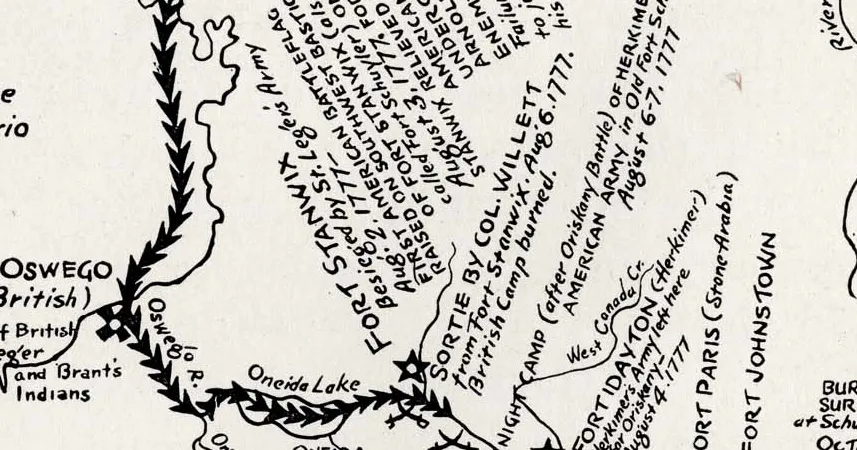 OSWEGO
British)
f British
and Brant's
Indians
Oswego R.
Oneida Lake
FORT STANWIX
Besieged by St. Legers' Army
Aug. 2, 1777-
FIRST AMERICAN BATTLEFLAG
RAISED ON SOUTHWEST BASTIO
OF FORT STANWIX (als
called Fort Schuyler) FOO
August 3, 1777.
STANWIX RELIEVED
AMERICAN
UNDER
ARNOL
ENEM
Failur
his
SORTIE BY COL. WILLETT
from Fort Stanwix. Aug 6. 1777.
British Camp burned.
NIGHT CAMP (after Oriskany Battle) OF HERKIME
AMERICAN ARMY in Old Fort Sc
August 6-7, 1777
West Canada Cr.
FORT DAYTON (Herkimer)
Herkimer's Army left here
for Oriskany-
August 4. 1777
ORT PARIS (Stone Arabia)
FORT JOHNSTOWN
River
BUR
SUR
at Schu
OCT